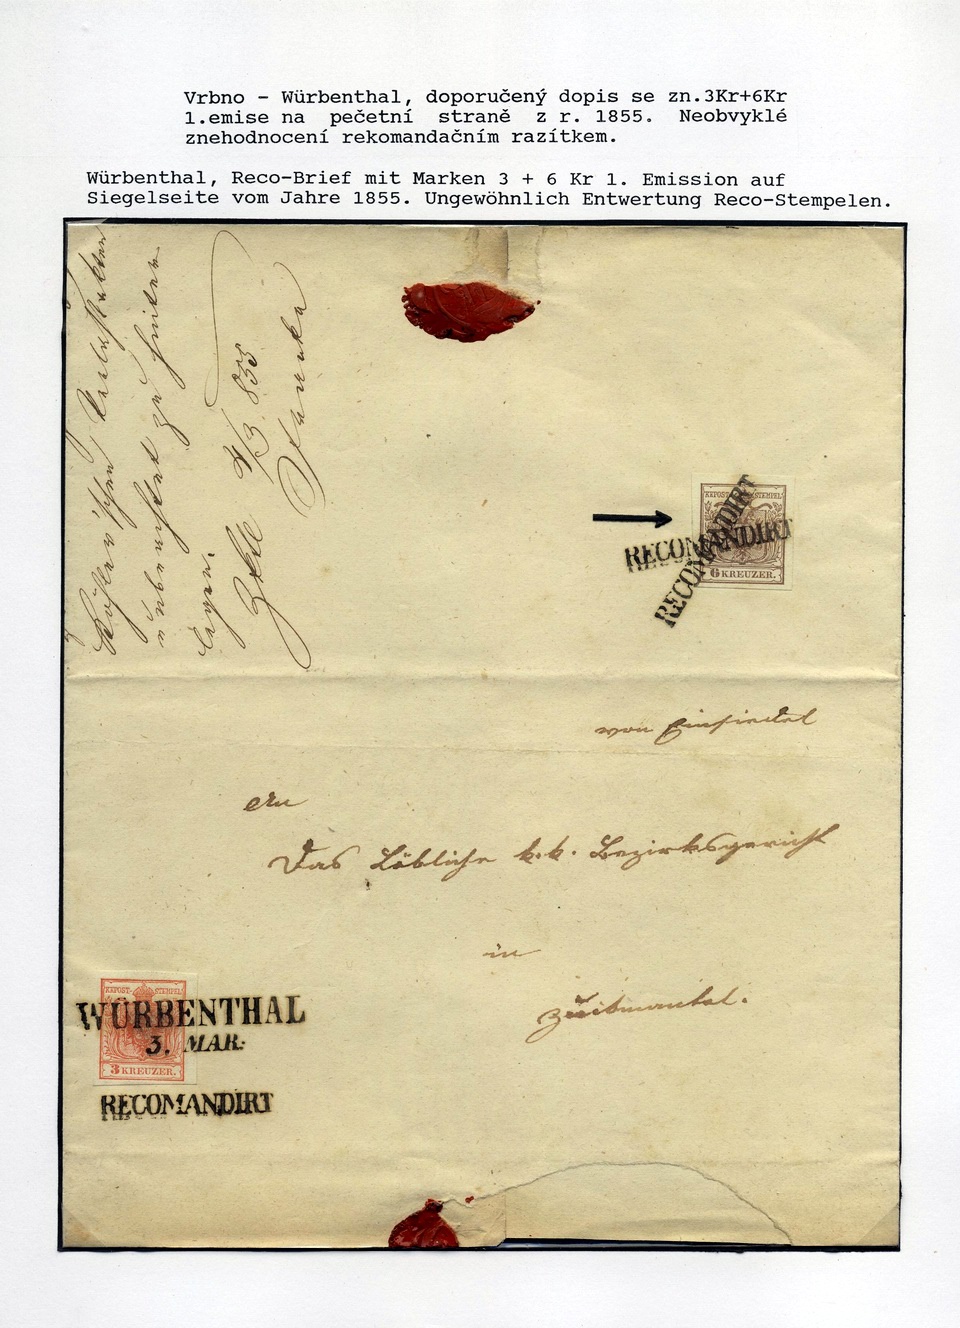 Vrbno – Würbenthal, doporučený dopis se zn.3Kr+6Kr
1.emise na pečetní straně z r. 1855. Neobvyklé
znehodnocení rekomandačním razítkem.
Würbenthal, Reco-Brief mit Marken 3 + 6 Kr 1. Emission auf
Siegelseite vom Jahre 1855. Ungewöhnlich Entwertung Reco-Stempelen.
zu
855
KK POST-STEMPEL
RECOMANDIRT
RECOMANDIRT
6 KREUZER.
von Einsiedel
An
Das Löbliche k.k. Bezirksgericht
in
Zukmantel.
KK POST-STEMPEL
WÜRBENTHAL
3. MAR:
3 KREUZER.
RECOMANDIRT